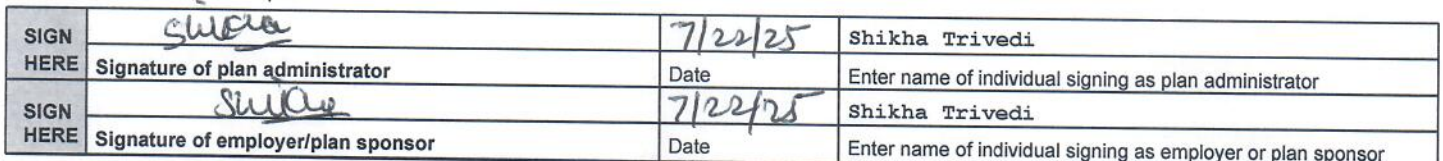 SIGN HERE Shikha 7/22/25 Shikha Trivedi
Signature of plan administrator Date Enter name of individual signing as plan administrator
SIGN HERE Shikha 7/22/25 Shikha Trivedi
Signature of employer/plan sponsor Date Enter name of individual signing as employer or plan sponsor